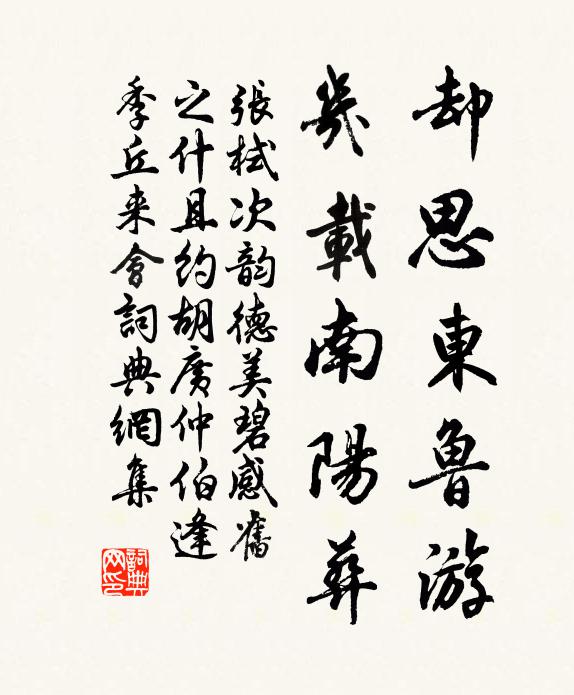 却思東魯游
幾載南陽葬
張栻次韵德美碧感舊
之什且約胡廣仲伯逢
季丘来會詞典網集
詞典
网印